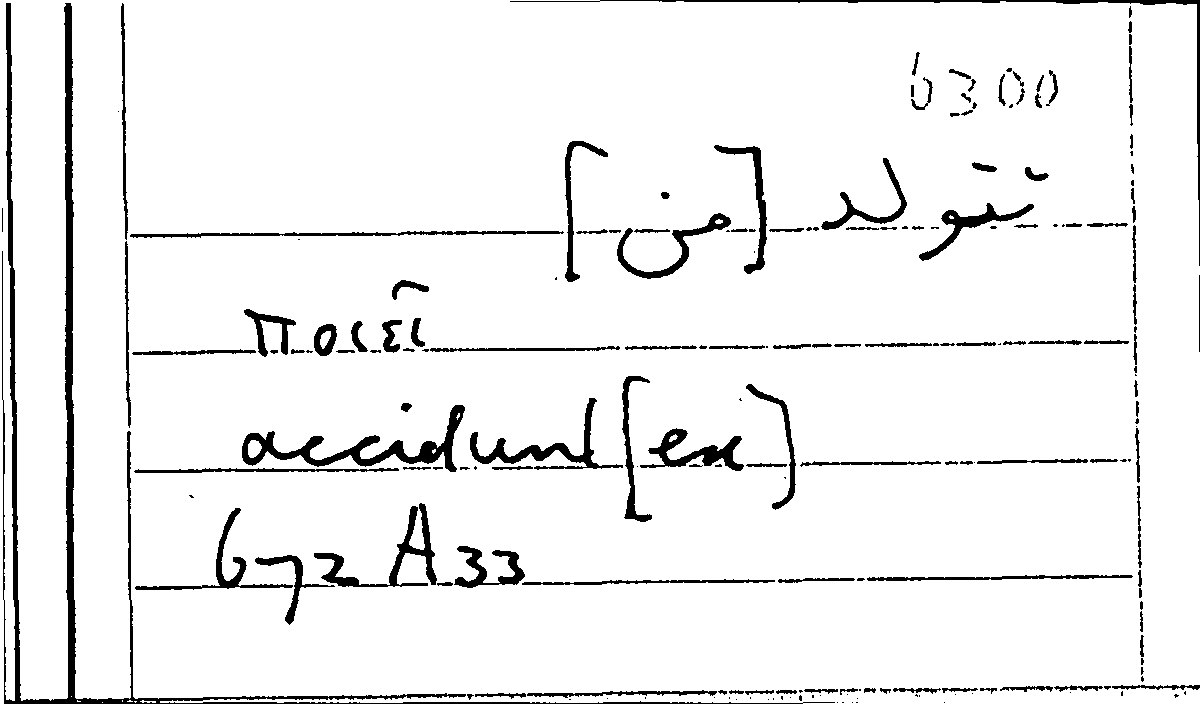 6300
تتولد [من]
ποιεῖ
accidunt [ex]
672 A 33